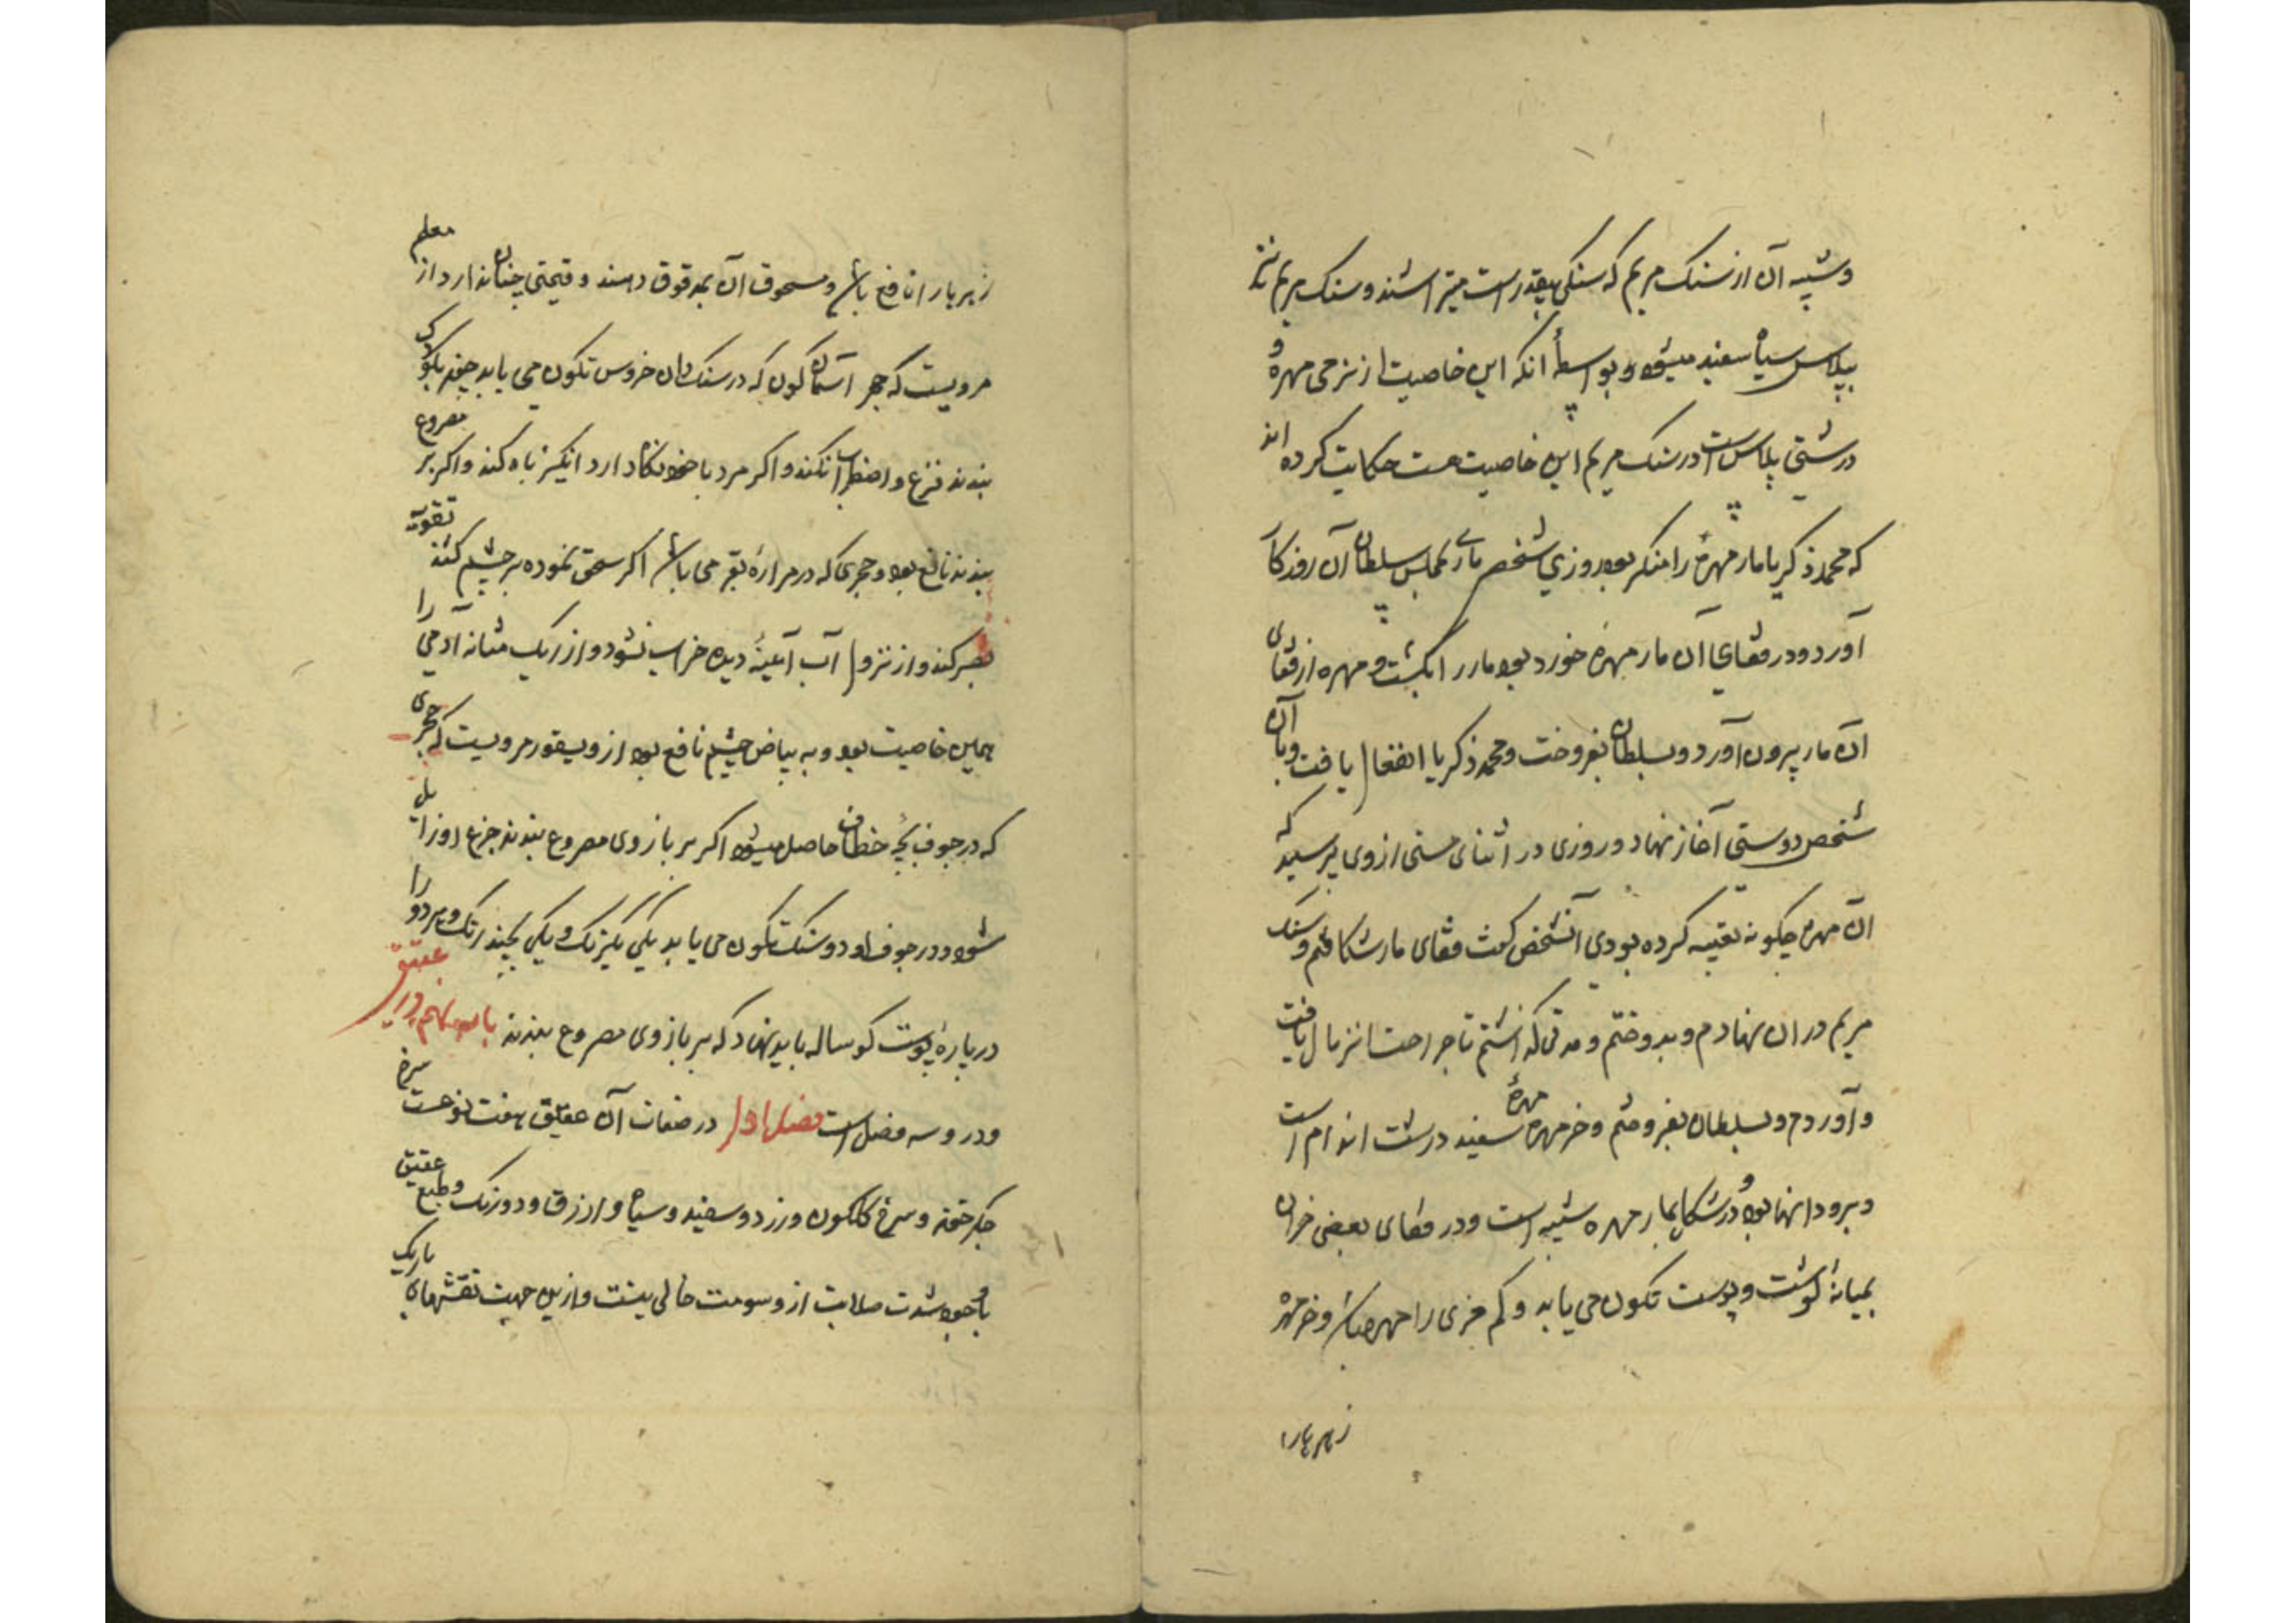 وشبیه آن از سنک مریم که سنکی بیقدر است میتراشند و سنک مریم نیز
بپلاس سیاه سفید میشود و بواسطهٔ انکه این خاصیت از نرمی مهره و
درشتی پلاس است در سنک مریم این خاصیت هست حکایت کرده اند
که محمد زکریا مار مهره را منکر بود روزی شخصی ماری بمجلس سلطان آن روزکار
آورد و در قفای آن مار مهره خورد بود مار را بکشت و مهره از قفای
آن مار بیرون آورد و بسلطان بفروخت و محمد زکریا انفعال یافت و با آن
شخص دوستی آغاز نهاد و روزی در اثنای مستی از وی پرسید که
آن مهره چکونه تعبیه کرده بودی آنشخص کفت قفای مار شکافتم و سنک
مریم در ان نهادم و بدوختم و مدتی کذاشتم تا جراحت اندمال یافت
و آوردم و بسلطان بفروختم و خرمهره مهرهٔ سفید درشت اندام است
و برو دانها بود و در شکل بمار مهره شبیه است و در قفای بعضی خران
بمیانهٔ کوشت و پوست تکون می یابد و کم خری را مهره باشد و خرمهره
زهرها را
زهرها را نافع باشد و مسحوق آن بمدقوق دهند و قیمتی چنان ندارد از معلم
مرویست که حجر آسمان کون که در سنک دان خروس تکون می یابد چون بر کودک
بندند فزع و اضطراب نکند و اکر مرد با خود نکاه دارد انکیز باه کند و اکر بر مصروع
بندند نافع بود و حجری که در مرارهٔ بقر می باشد اکر سحق نموده بر چشم کنند تقویة
بصر کند و از نزول آب آیینهٔ دیده خراب نشود و از ریک مثانه آدمی را
همین خاصیت بود و به بیاض چشم نافع بود از دیسقوریدوس مرویست که حجری
که در جوف بچهٔ خطاف حاصل میشود اکر بر بازوی مصروع بندند جزع او زایل
شود و در جوف او دو سنک تکون می یابد یکی یکرنک و یکی بچند رنک و هر دو را
در پارهٔ پوست کوساله باید نهاد که بر بازوی مصروع بندند باب نهم در عقیق
و درو سه فصل است فصل اول در صفات آن عقیق هفت نوعست سرخ
جکری و سرخ کلکون و زرد و سفید و سیاه و ازرق و دو رنک و طبع عقیق
با وجود شدت صلابت از دسومت خالی نیست و ازین جهت نقشهای باریک